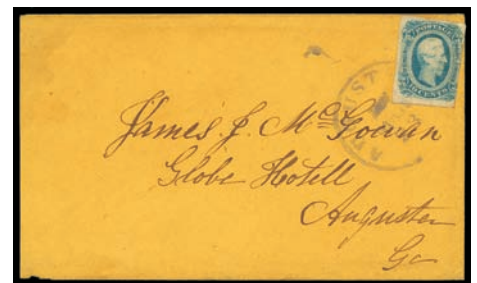 POSTAGE
James J. McGowan
Globe Hotell
Augusta
Ga